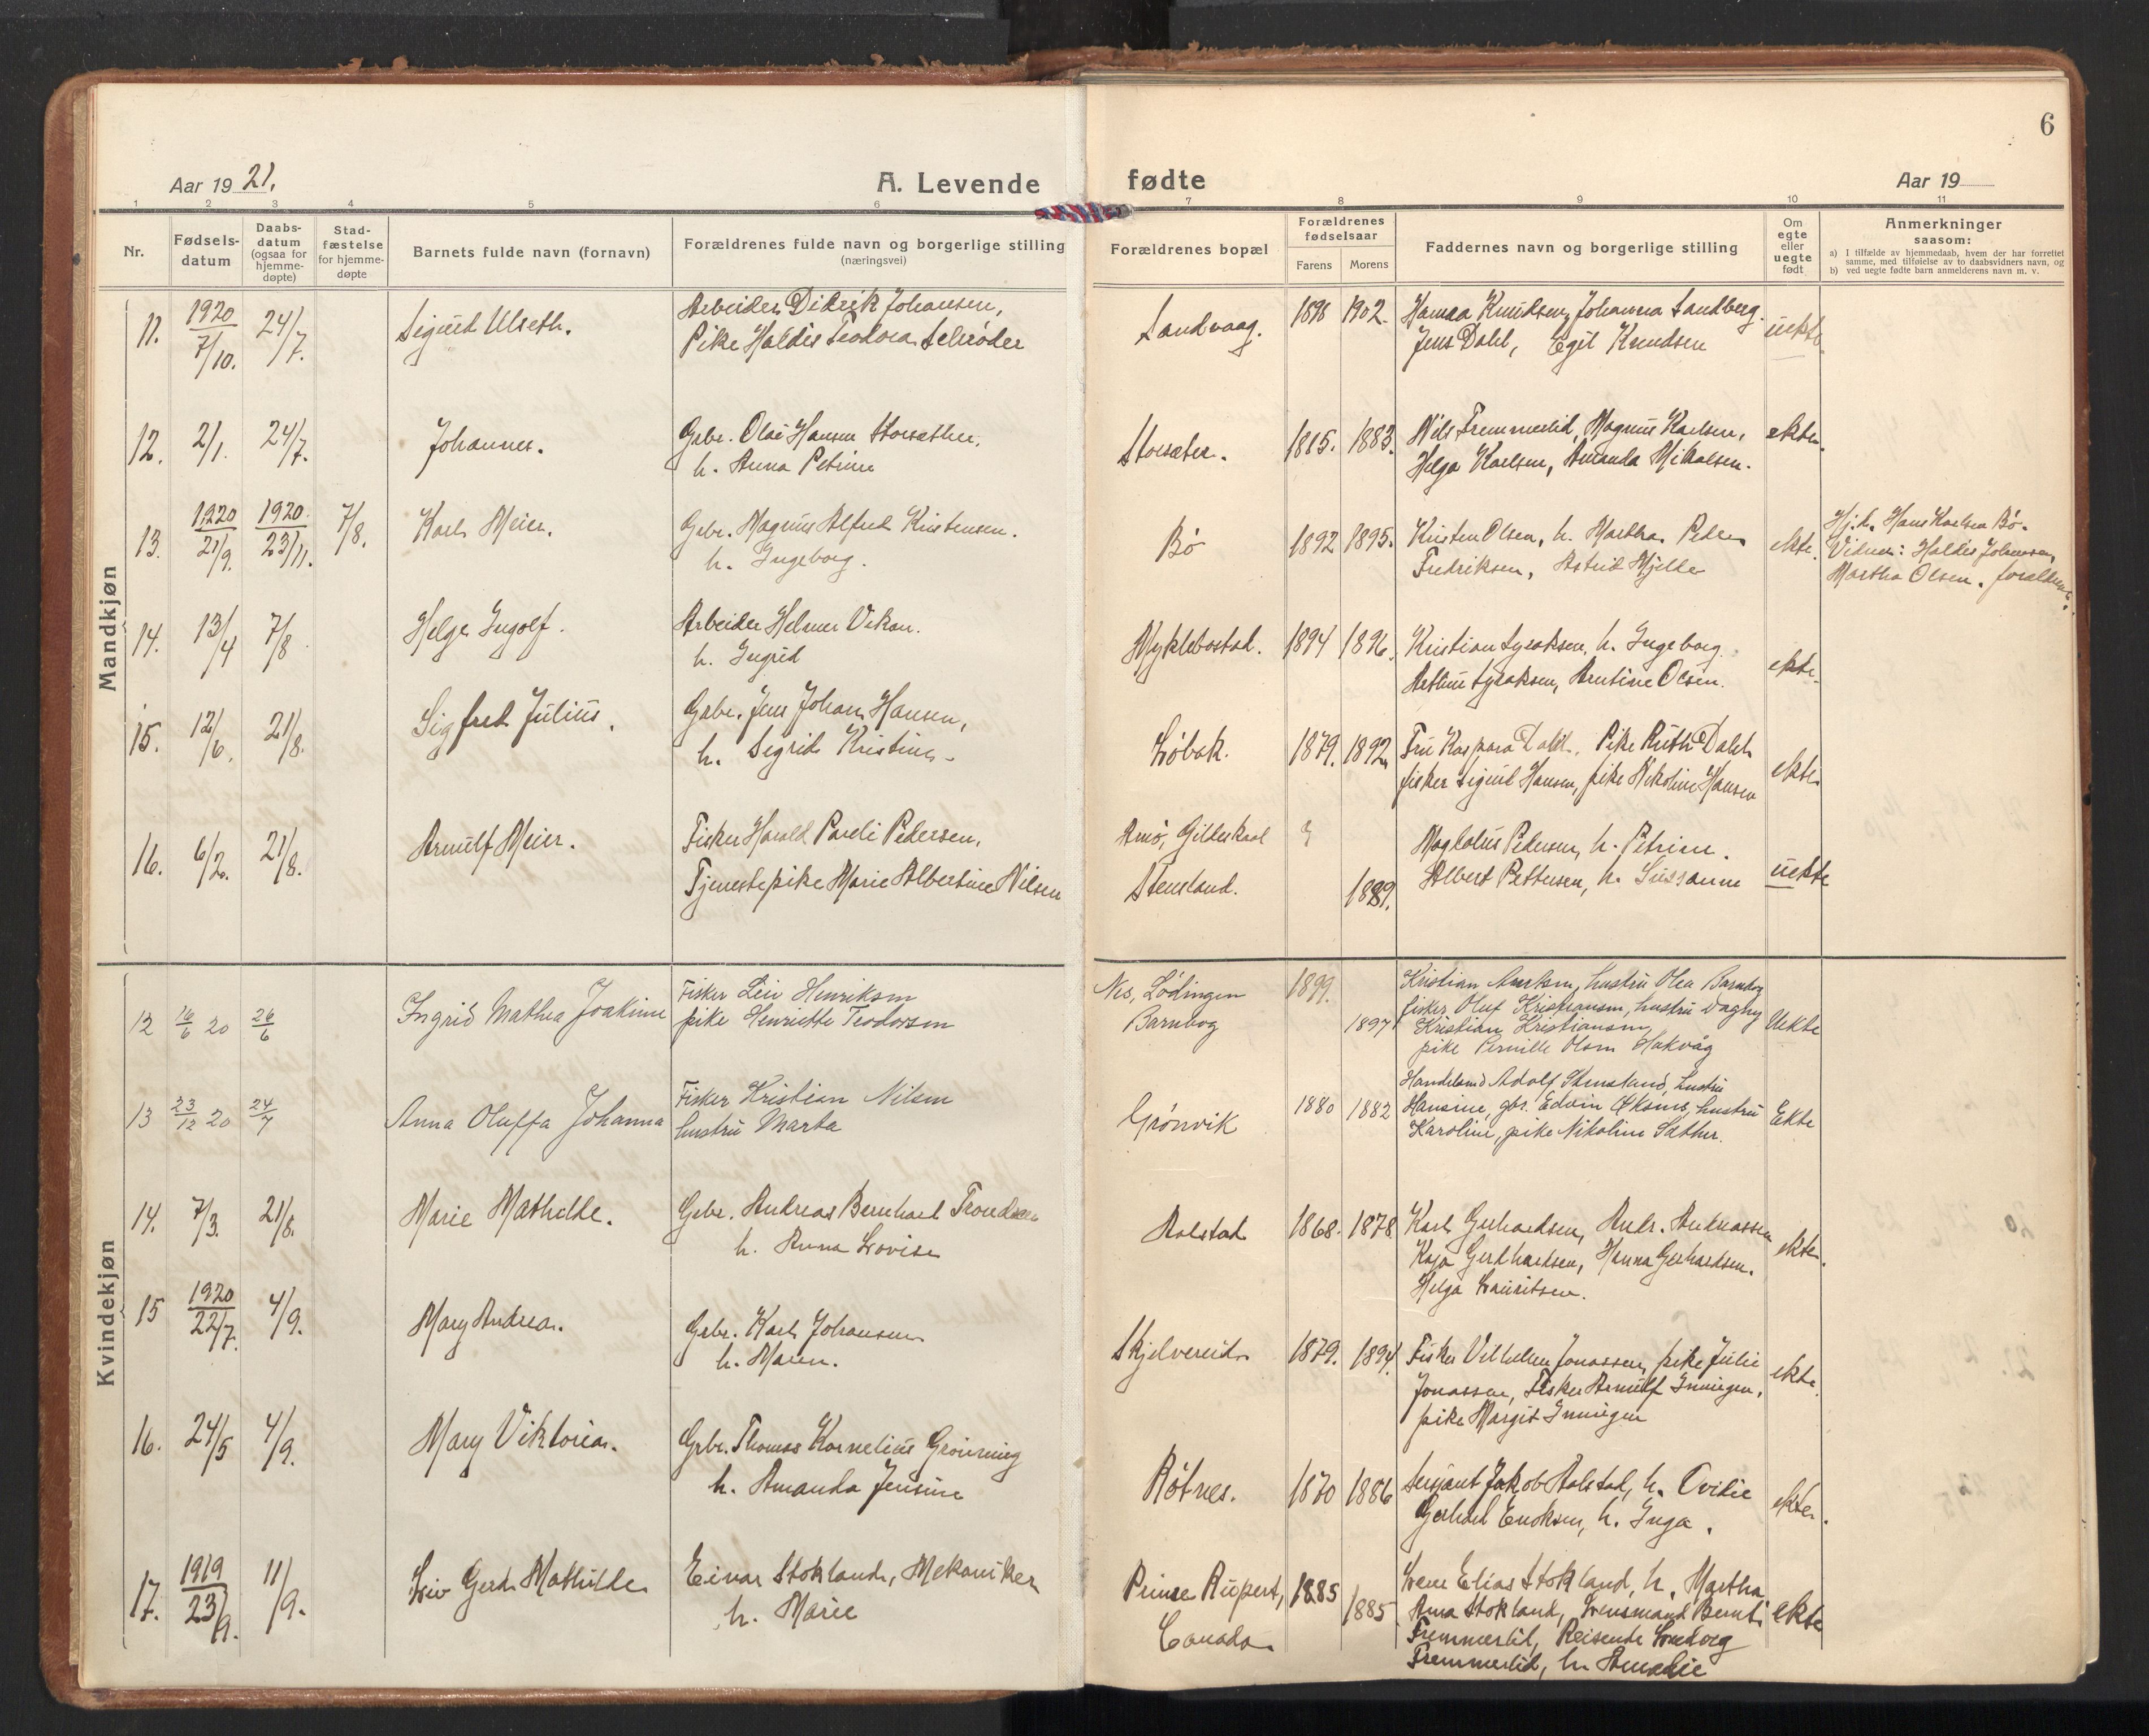 6
Aar 19 21.
A. Levende fødte
Aar 19
1 2 3 4 5 6 7 8 9 10 11
Nr.
Fødsels-
datum
Daabs-
datum
(ogsaa for
hjemme-
døpte)
Stad-
fæstelse
for hjemme-
døpte
Barnets fulde navn (fornavn)
Forældrenes fulde navn og borgerlige stilling
(næringsvei)
Forældrenes bopæl
Forældrenes
fødselsaar
Farens Morens
Faddernes navn og borgerlige stilling
Om
egte
eller
uegte
født
Anmerkninger
saasom:
a) I tilfælde av hjemmedaab, hvem der har forrettet
samme, med tilføielse av to daabsvidners navn, og
b) ved uegte fødte barn anmelderens navn m. v.
Mandkjøn
11. 1920 7/10. 24/7. Sigurd Ulseth.
Arbeider Didrik Johansen,
Pike Haldis Teodora Schrøder
Sandvaag. 1898 1902.
Knudsen, Johanna Sandberg.
Jens Dahl, Egil Knudsen
uekte.
12. 2/1. 24/7. Johannes.
Gbr. Olai Hansen Storsæther,
h. Anna Petrine
Storsæter. 1885. 1883.
Nils Fremmerlid, Magnus Karlsen,
Helga Karlsen, Amanda Mikalsen.
ekte.
13. 1920 21/9. 1920 23/11. 7/8. Karl Meier.
Gbr. Magnus Alfred Kristensen.
h. Ingeborg.
Bø 1892 1895.
Kristen Olsen, h. Martha. Peder
Fredriksen, Astrid Hjelde
ekte.
Hj.d. Hans Karlsen Bø.
Vidner: Haldis Johansen,
Martha Olsen.
14. 13/4 7/8 Helge Ingolf.
Arbeider Helmer Vikan.
h. Ingrid
Myklebostad. 1894 1896.
Kristian Syraksen, h. Ingeborg.
Arthur Syraksen, Arntine Olsen.
ekte.
15. 12/6. 21/8. Sigfred Julius.
Gbr. Jens Johan Hansen,
h. Sigrid Kristine.
Løbak. 1879. 1892.
Fru Kaspara Dahl. Pike Ruth Dahl
fisker Sigurd Hansen, pike Nikoline Hansen
ekte
16. 6/2. 21/8. Arnulf Meier.
Fisker Harald Pareli Pedersen,
Tjenestepike Marie Albertine Nilsen
Arnø, Gildeskaal ?
Stensland. 1889.
Magtolus Pedersen, h. Petrine.
Albert Pettersen, h. Sussanne
uekte
Kvindekjøn
12 16/6 20 26/6 Ingrid Mathea Joakime
Fisker Leiv Henriksen
pike Henriette Teodorsen
Nes, Lødingen 1899.
Barnbog 1897
Kristian hustru Olea Barnbog
fisker Oluf Kristiansen, hustru Dagny
Kristian Kristiansen,
pike Pernille Olsen Hakvåg
Uekte
13 23/12 20 24/7 Anna Oluffa Johanna
Fisker Kristian Nilsen
hustru Marta
Grønvik 1880 1882
Handelsmd Adolf Stensland, hustru
Hansine, gbr. Edvin hustru
Karoline, pike Nikoline Sæther.
Ekte
14. 7/3. 21/8. Marie Mathilde.
Gbr. Andreas Bernhard Trondsen
h. Anna Lovise
Aalstad 1868. 1878
Karl Gerhardsen, Andr. Andreassen
Kaja Gerhardsen, Hanna Gerhardsen.
Helga Lauritsen.
ekte.
15 1920 22/7. 4/9. Mary Andrea.
Gbr. Karl Johansen
h. Maren.
Skjelvereid. 1879. 1894.
Fisker Vilhelm Jonassen, pike Julie
Jonassen, Fisker Arnulf Inningen,
pike Margit Inningen
ekte.
16. 24/5 4/9. Mary Viktoria.
Gbr. Thomas Kornelius Grønning
h. Amanda Jensine
Røtnes. 1870 1886
Sersjant Jakob Aalstad, h. Ovidie
Gerhard Enoksen, h. Inga.
ekte.
17. 1919 23/9. 11/9. Liv Gerd Mathilde
Einar Stokland, Mekaniker
h. Marie
Prince Rupert, 1885
Canada. 1885
Elias Stokland, h. Martha
Anna Stokland, Lensmand Bernt
Fremmerlid, Reisende
Fremmerlid, h. Amalie
ekte